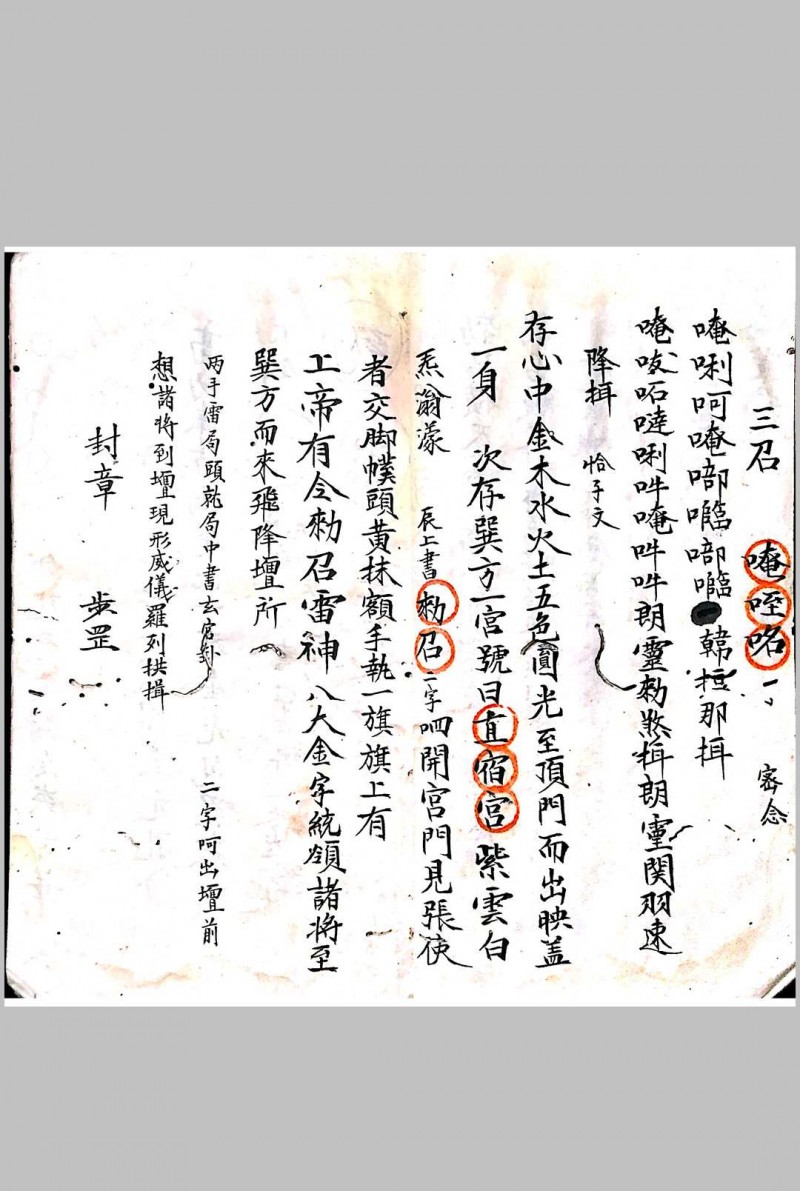 三召 唵咥㗋 密念
唵唎呵唵㖣𡅏㖣𡅏 韓那揖
唵㕹㕷噠唎吽唵吽吽朗靈勅煞揖朗靈関羽速
降揖 恰子文
存心中金木水火土五色圓光至頂門而出映盖
一身 次存巽方一宮號曰直宿宮紫雲白
炁滃濛 辰上書勅召二字呬開宮門見張使
者交脚幞頭黃抹額手執一旗旗上有
上帝有令勅召雷神 八大金字統領諸将至
巽方而來飛降壇所
两手雷局頭就局中書玄 二字呵出壇前
想諸将到壇現形威儀羅列拱揖
封章 步罡